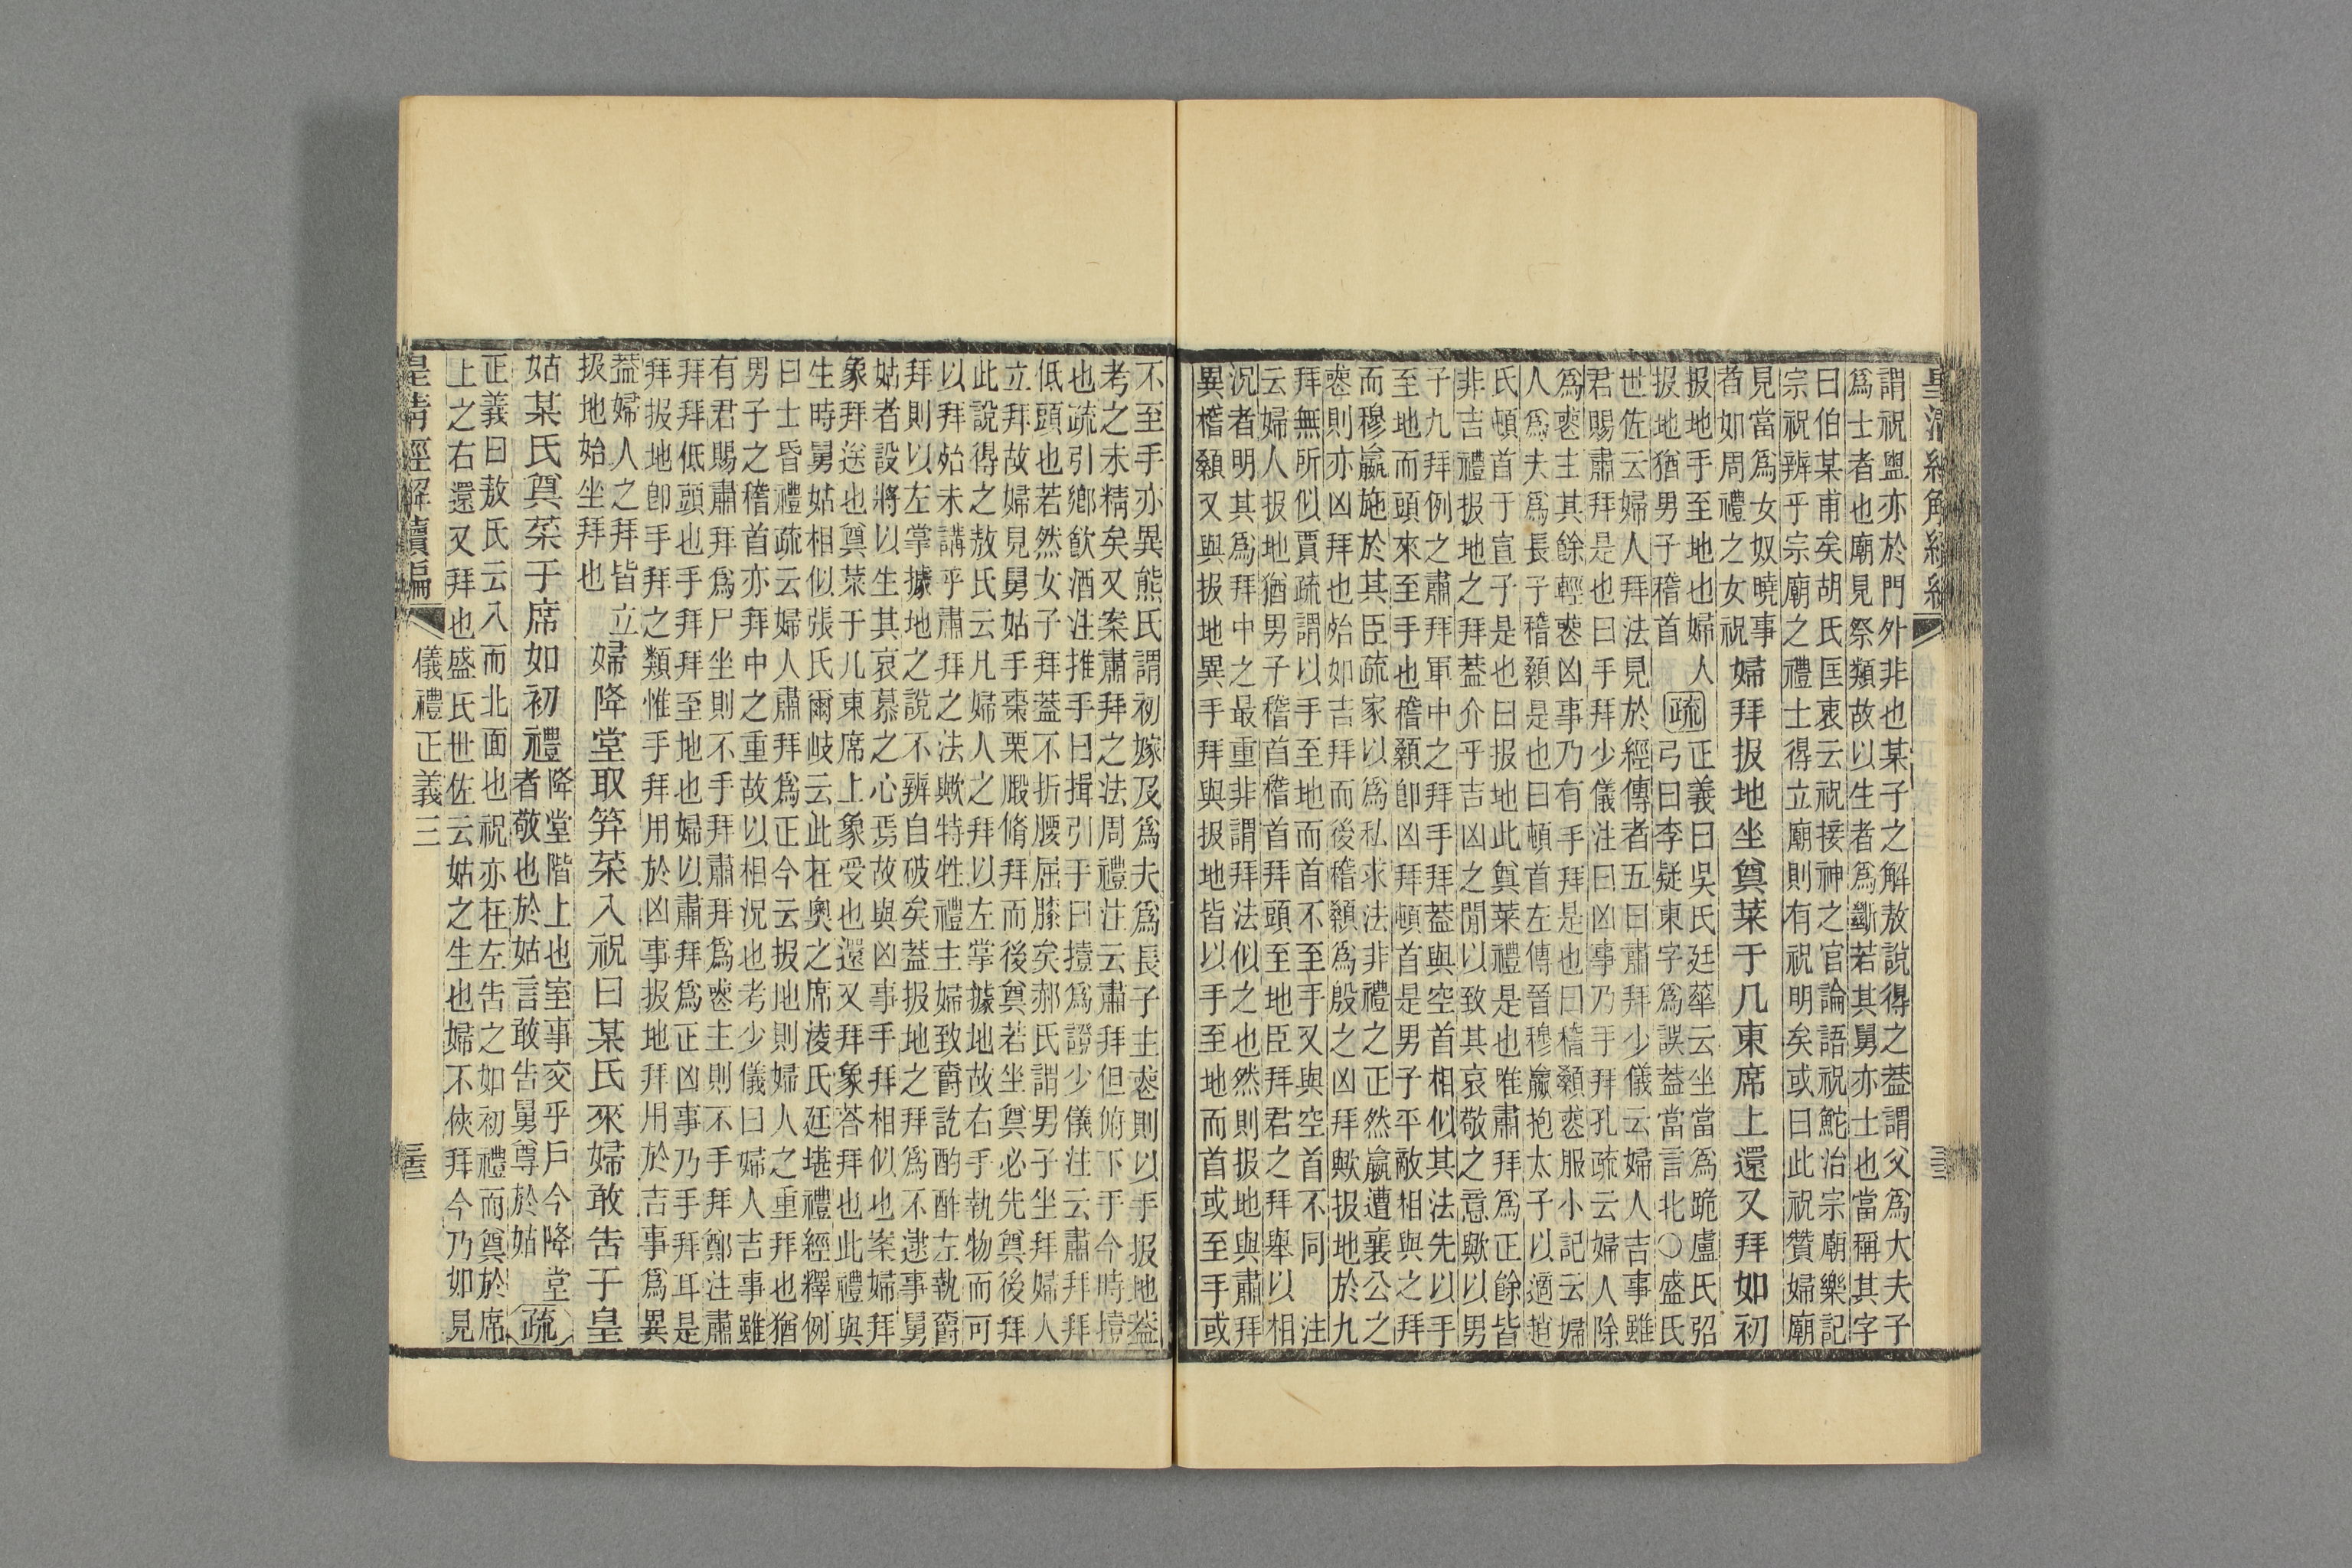 謂祝盥亦於門外非也某子之解敖說得之葢謂父爲大夫子
爲士者也廟見祭類故以生者爲斷若其舅亦士也當稱其字
曰伯某甫矣胡氏匡衷云祝接神之官論語祝鮀治宗廟樂記
宗祝辨乎宗廟之禮士得立廟則有祝明矣或曰此祝贊婦廟
見當爲女奴曉事
者如周禮之女祝
婦拜扱地坐奠菜于几東席上還又拜如初
扱地手至地也婦人
扱地猶男子稽首
疏
正義曰吳氏廷華云坐當爲跪盧氏弨
弓曰李疑東字爲誤葢當言北○盛氏
世佐云婦人拜法見於經傳者五曰肅拜少儀云婦人吉事雖
君賜肅拜是也曰手拜少儀注曰凶事乃手拜孔疏云婦人除
爲喪主其餘輕喪凶事乃有手拜是也曰稽顙喪服小記云婦
人爲夫爲長子稽顙是也曰頓首左傳晉穆嬴抱太子以適趙
氏頓首于宣子是也曰扱地此奠菜禮是也唯肅拜爲正餘皆
非吉禮扱地之拜葢介乎吉凶之閒以致其哀敬之意歟以男
子九拜例之肅拜軍中之拜手拜葢與空首相似其法先以手
至地而頭來至手也稽顙卽凶拜頓首是男子平敵相與之拜
而穆嬴施於其臣疏家以爲私求法非禮之正然嬴遭襄公之
喪則亦凶拜也殆如吉拜而後稽顙爲殷之凶拜歟扱地於九
拜無所似賈疏謂以手至地而首不至手又與空首不同 注
云婦人扱地猶男子稽首稽首拜頭至地臣拜君之拜舉以相
況者明其爲拜中之最重非謂拜法似之也然則扱地與肅拜
異稽顙又與扱地異手拜與扱地皆以手至地而首或至手或
不至手亦異熊氏謂初嫁及爲夫爲長子主喪則以手扱地葢
考之未精矣又案肅拜之法周禮注云肅拜但俯下手今時撎
也疏引鄉飲酒注推手曰揖引手曰撎爲證少儀注云肅拜拜
低頭也若然女子拜葢不折腰屈膝矣郝氏謂男子坐拜婦人
立拜故婦見舅姑手棗栗腶脩拜而後奠若坐奠必先奠後拜
此說得之敖氏云凡婦人之拜以左掌據地故右手執物而可
以拜殆未講乎肅拜之法歟特牲禮主婦致爵訖酌酢左執爵
拜則以左掌據地之說不辨自破矣葢扱地之拜爲不逮事舅
姑者設將以生其哀慕之心焉故與凶事手拜相似也案婦拜
象拜送也奠菜于几東席上象受也還又拜象荅拜也此禮與
生時舅姑相似張氏爾岐云此在奧之席淩氏廷堪禮經釋例
曰士昏禮疏云婦人肅拜爲正今云扱地則婦人之重拜也猶
男子之稽首亦拜中之重故以相況也考少儀曰婦人吉事雖
有君賜肅拜爲尸坐則不手拜肅拜爲喪主則不手拜鄭注肅
拜拜低頭也手拜拜至地也婦以肅拜爲正凶事乃手拜耳是
拜扱地卽手拜之類惟手拜用於凶事扱地拜用於吉事爲異
葢婦人之拜皆立
扱地始坐拜也
婦降堂取笲菜入祝曰某氏來婦敢告于皇
姑某氏奠菜于席如初禮
降堂階上也室事交乎戶今降堂
者敬也於姑言敢告舅尊於姑
疏
正義曰敖氏云入而北面也祝亦在左告之如初禮而奠於席
上之右還又拜也盛氏世佐云姑之生也婦不俠拜今乃如見
皇清經解續編
儀禮正義三